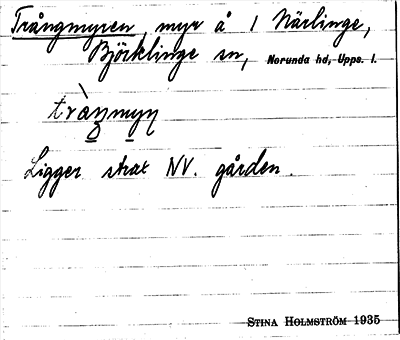 Trångmyren, myr å 1 Närlinge,
Björklinge sn, Norunda hd, Upps. l.
Ligger strax NV. gården.
STINA HOLMSTRÖM 1935